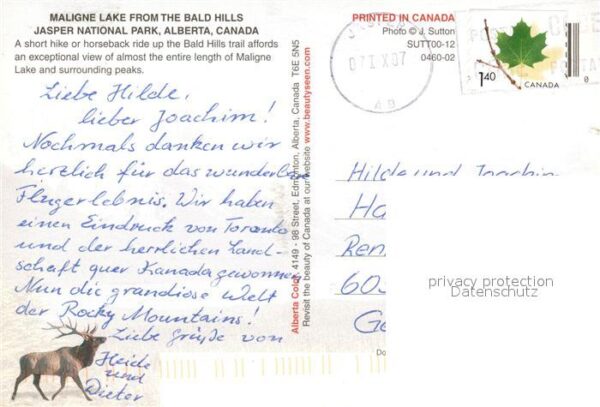 MALIGNE LAKE FROM THE BALD HILLS
JASPER NATIONAL PARK, ALBERTA, CANADA
A short hike or horseback ride up the Bald Hills trail affords
an exceptional view of almost the entire length of Maligne
Lake and surrounding peaks.
Liebe Hilde,
lieber Joachim!
Nochmals danken wir
herzlich für das wunderbare
Flugerlebnis. Wir haben
einen Eindruck von Toronto
und der herrlichen Land-
schaft quer Kanada gewonnen
Nun die grandiose Welt
der Rocky Mountains!
Liebe Grüße von
Heide
und
Dieter
Alberta Color, 4149 - 98 Street, Edmonton, Alberta, Canada T6E 5N5
Revisit the beauty of Canada at our website www.beautyseen.com
PRINTED IN CANADA
Photo © J. Sutton
SUTT00-12
0460-02
07 IX 07
AB
1.40
CANADA
Hilde und Joachim
Ha
Ren
60
Ge
Do
privacy protection
Datenschutz